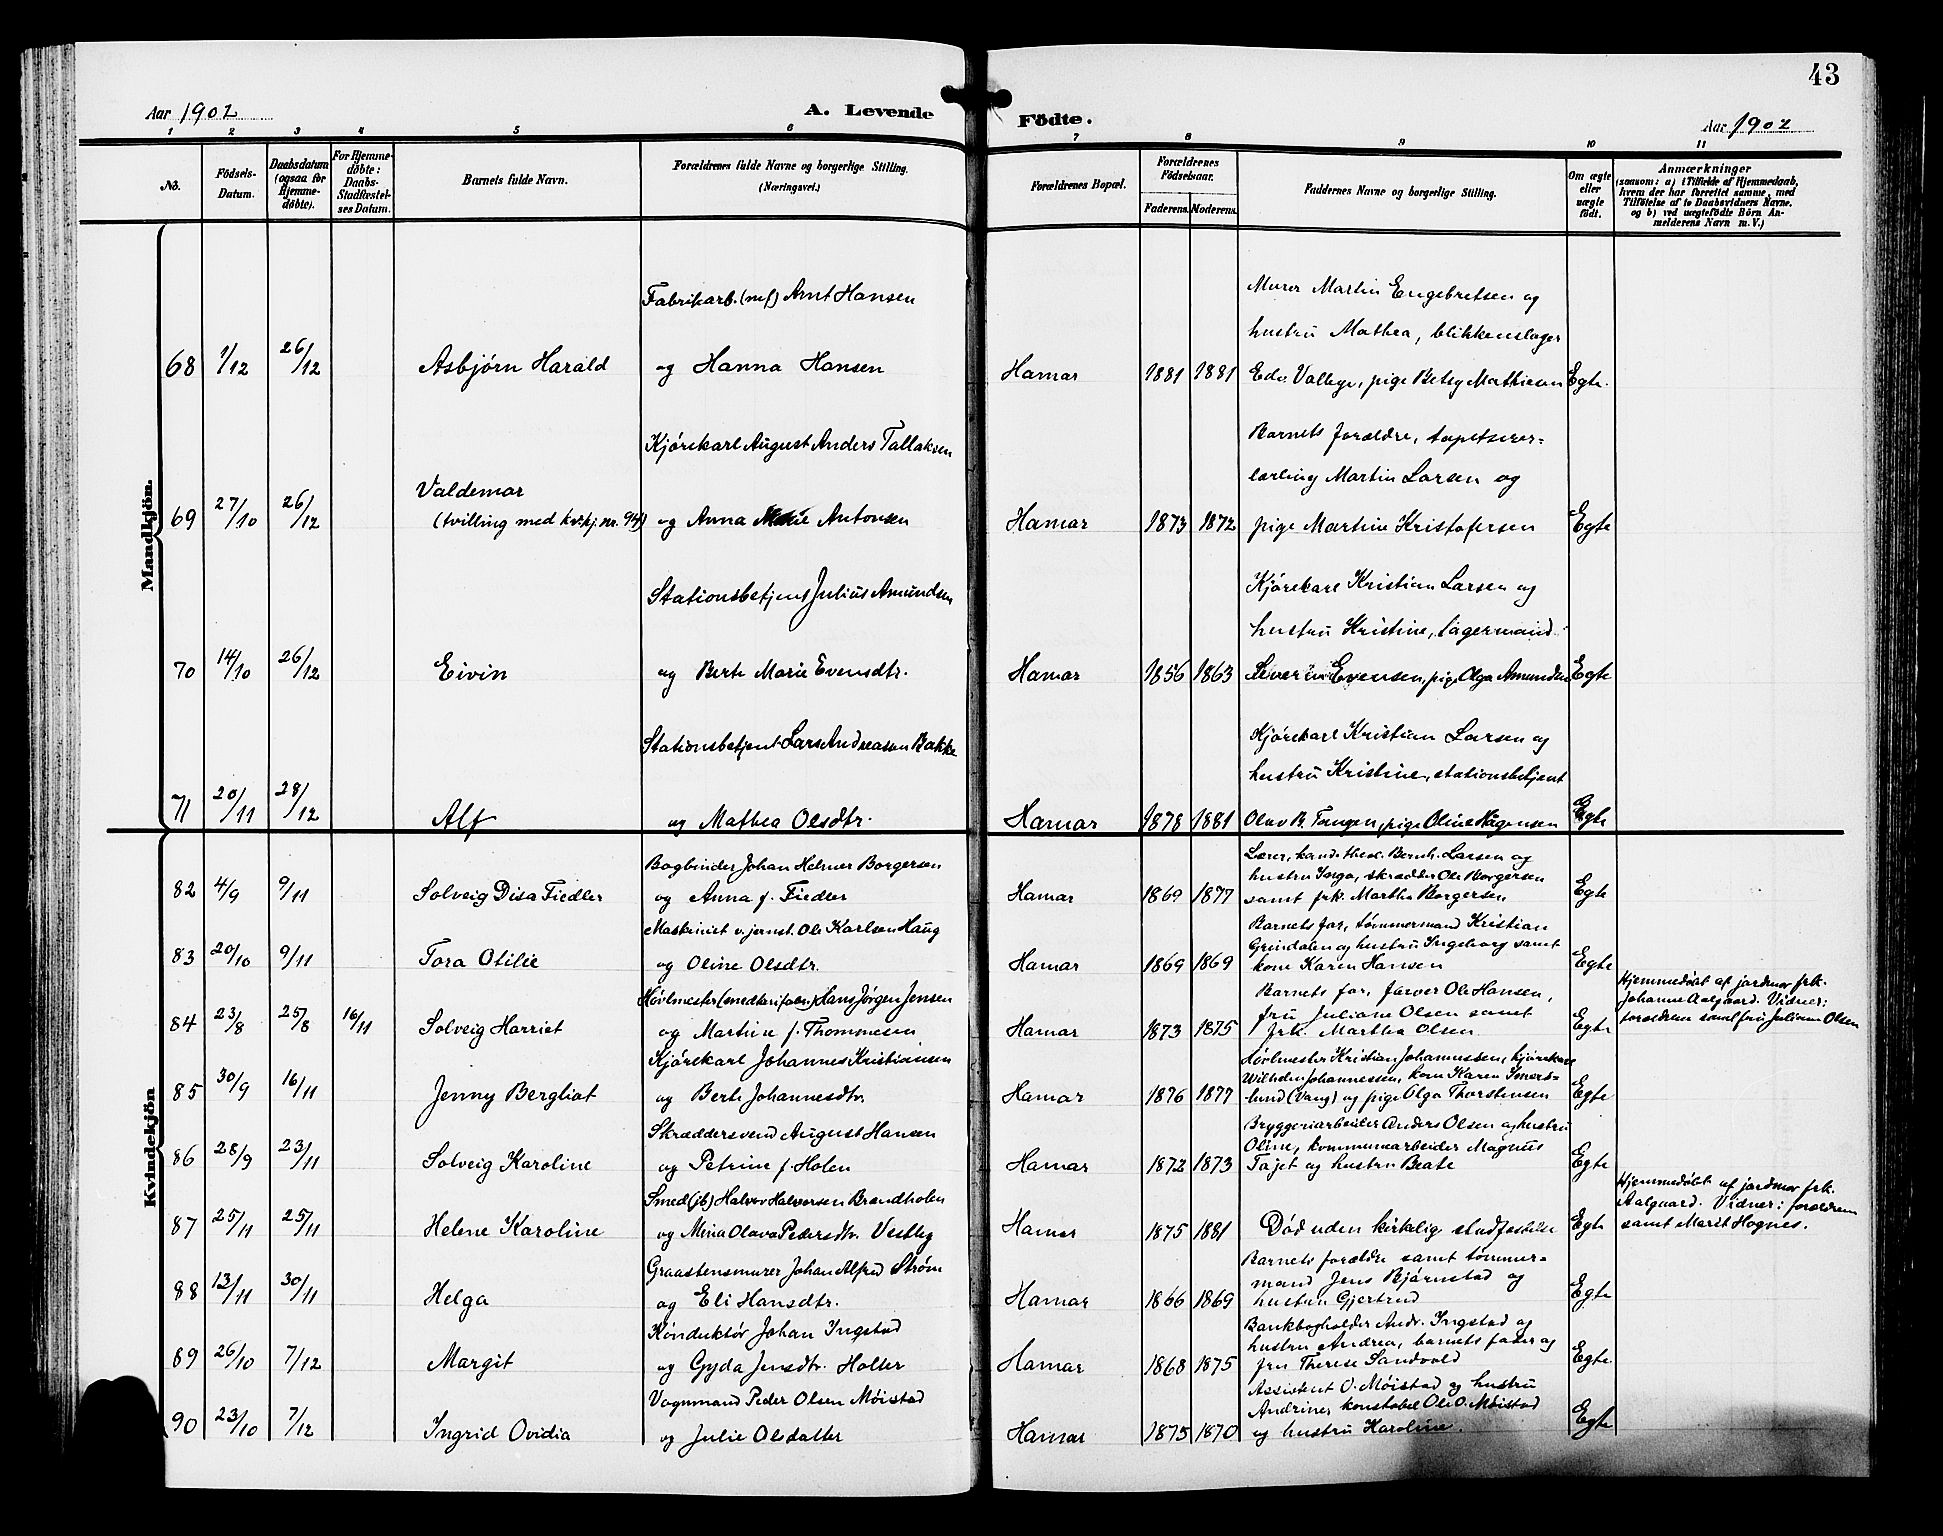 43
Aar 1902
A. Levende Födte.
Aar 1902
1 2 3 4 5 6 7 8 9 10 11
Nö.
Födsels-
Datum.
Daabsdatum
(ogsaa for
Hjemme-
döbte).
For Hjemme-
döbte:
Daabs-
Stadfæstel-
ses Datum.
Barnets fulde Navn.
Forældrenes fulde Navne og borgerlige Stilling.
(Næringsvei.)
Forældrenes Bopæl.
Forældrenes
Födselsaar.
Faderens. Moderens.
Faddernes Navne og borgerlige Stilling.
Om ægte
eller
uægte
födt.
Anmærkninger
(saasom: a) i Tilfælde af Hjemmedaab,
hvem der har forrettet samme, med
Tilföielse af to Daabsvidners Navne.
og b) ved uægtefödte Börn An-
melderens Navn m. V.)
Mandkjön.
Fabrikarb. (mf) Arnt Hansen
68 1/12 26/12 Asbjørn Harald og Hanna Hansen
Hamar 1881 1881
Murer Martin Engebretsen og
hustru Mathea, blikkenslager
Edv. Valbye, pige Betsy Mathiesen Egte.
Kjørekarl August Anders Tallaksen
69 27/10 26/12 Valdemar
(tvilling med kv.kj. nr. 94) og Anna Marie Antonsen
Hamar 1873 1872
Barnets forældre, tapetserer-
lærling Martin Larsen og
pige Martine Kristofersen Egte
Stationsbetjent Julius Amundsen
70 14/10 26/12 Eivin og Berte Marie Evensdtr.
Hamar 1856 1863
Kjørekarl Kristian Larsen og
hustru Kristine, lagermand
Severin Evensen, pige Olga Amundsen Egte
Stationsbetjent Lars Andreasen Bakke
71 20/11 28/12 Alf og Mathea Olsdtr.
Hamar 1878 1881
Kjørekarl Kristian Larsen og
hustru Kristine, stationsbetjent
Olav B. Tangen, pige Oline Hågensen Egte
Kvindekjön
Bogbinder Johan Helmer Borgersen
82 4/9 9/11 Solveig Disa Fiedler og Anna f. Fiedler
Hamar 1869 1877
Lærer, kand. theol. Bernh. Larsen og
hustru Inga, skrædder Ole Borgersen
samt frk. Martha Borgersen Egte
Maskinist v. jernst. Ole Karlsen Haug
83 20/10 9/11 Tora Otilie og Oline Olsdtr.
Hamar 1869 1869
Barnets far, tømmermand Kristian
Grindalen og hustru Ingeborg samt
kone Karen Hansen Egte
Høvlmester (snedkerifabr.) Hans Jørgen Jensen
84 23/8 25/8 16/11 Solveig Harriet og Martine f. Thommesen
Hamar 1873 1875
Barnets far, farver Ole Hansen,
fru Juliane Olsen samt
frk. Martha Olsen Egte
Hjemmedøbt af jordmor frk.
Johanne Aalgaard. Vidner:
forældrene samt fru Juliane Olsen
Kjørekarl Johannes Kristiansen
85 30/9 16/11 Jenny Bergliot og Berte Johannesdtr.
Hamar 1876 1877
Høvlmester Kristian Johannessen, kjørekarl
Wilhelm Johannessen, kone Karen Smers-
lund (Vang) og pige Olga Thorstensen Egte
Skræddersvend August Hansen
86 28/9 23/11 Solveig Karoline og Petrine f. Holen
Hamar 1872 1873
Bryggeriarbeider Anders Olsen og hustru
Oline, kommunearbeider Magnus
Tajet og hustru Beate Egte
Smed (jb) Halvor Halvorsen Brandholen
87 25/11 25/11 Helene Karoline og Mina Olava Pedersdtr. Vestby
Hamar 1875 1881
Død uden kirkelig stadfæstelse Egte
Hjemmedøbt af jordmor frk.
Aalgaard. Vidner: forældrene
samt Marit Hognes.
Graastensmurer Johan Alfred Strøm
88 13/11 30/11 Helga og Eli Hansdtr.
Hamar 1866 1869
Barnets forældre samt tømmer-
mand Jens Bjørnstad og
hustru Gjertrud Egte
Konduktør Johan Ingstad
89 26/10 7/12 Margit og Gyda Jensdtr. Holter
Hamar 1868 1875
Bankbogholder Andr. Ingstad og
hustru Andrea, barnets fader og
fru Therese Sandvold Egte.
Vognmand Peder Olsen Møistad
90 23/10 7/12 Ingrid Ovidia og Julie Olsdatter
Hamar 1875 1870
Assistent O. Møistad og hustru
Andrine, konstabel Ole O. Møistad
og hustru Karoline. Egte